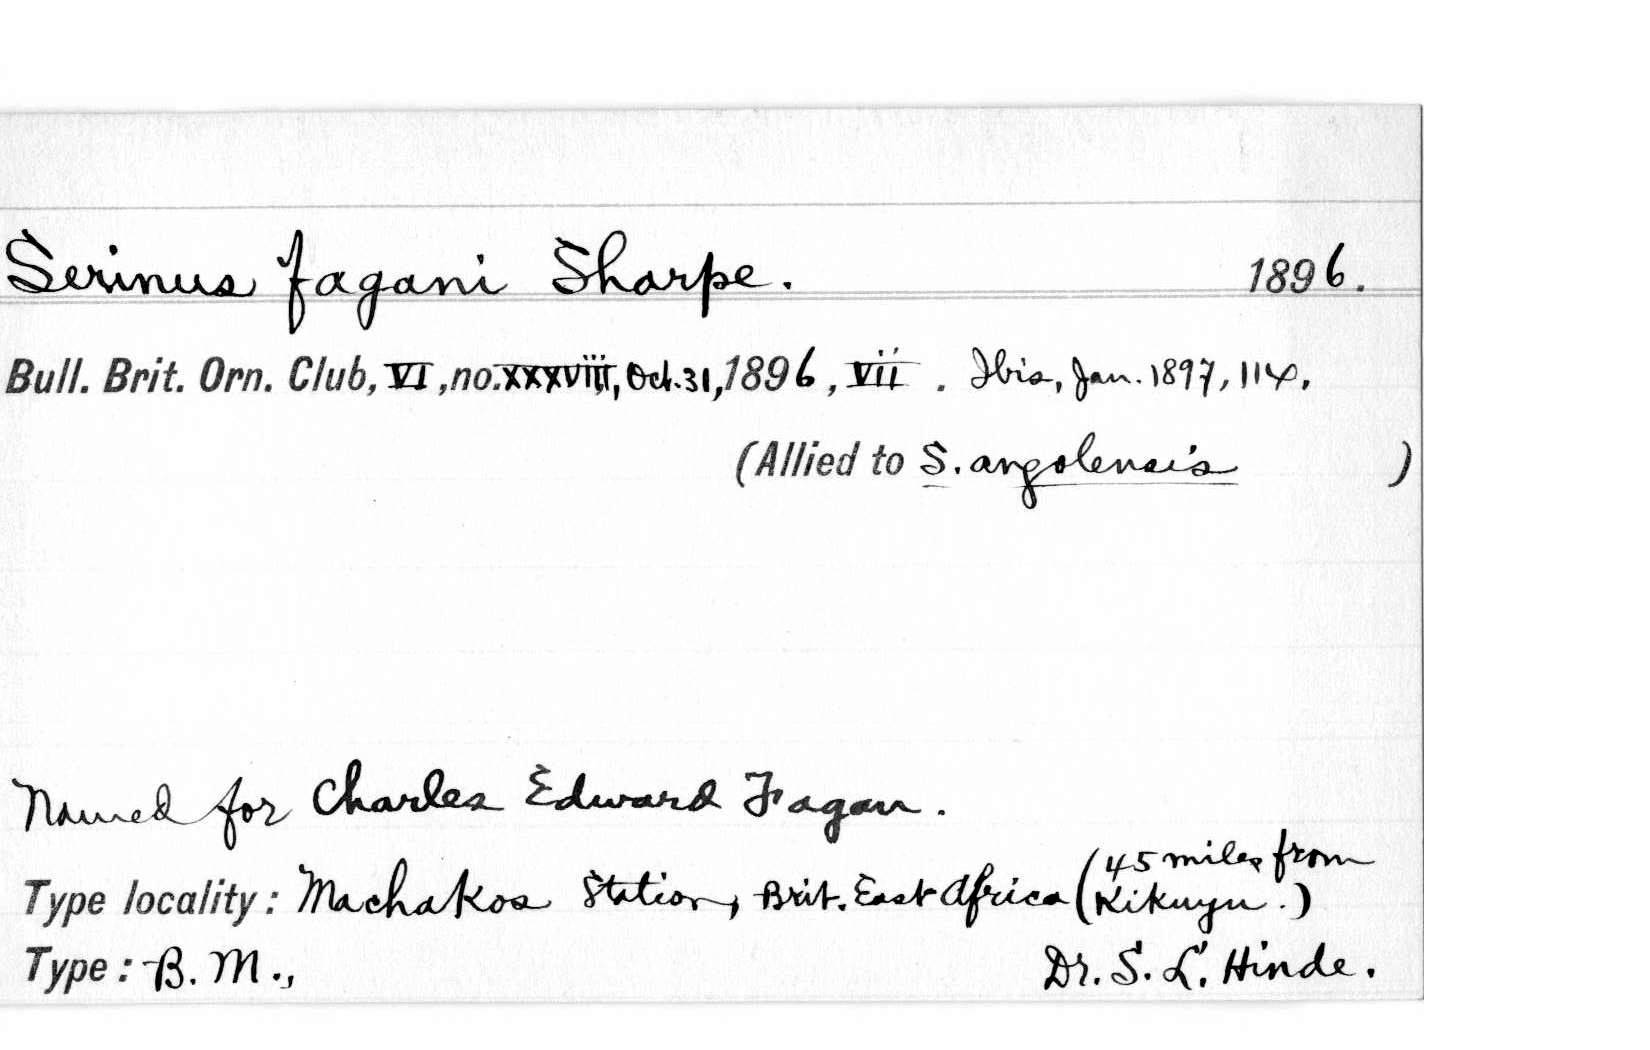 Serinus fagani Sharpe. 1896.
Bull. Brit. Orn. Club, VI, no. xxxviii, Oct. 31, 1896, vii. Ibis, Jan. 1897, 114.
(Allied to S. angolensis )
Named for Charles Edward Fagan.
Type locality: Machakos Station, Brit. East Africa (45 miles from
Kikuyu.)
Type: B. M., Dr. S. L. Hinde.